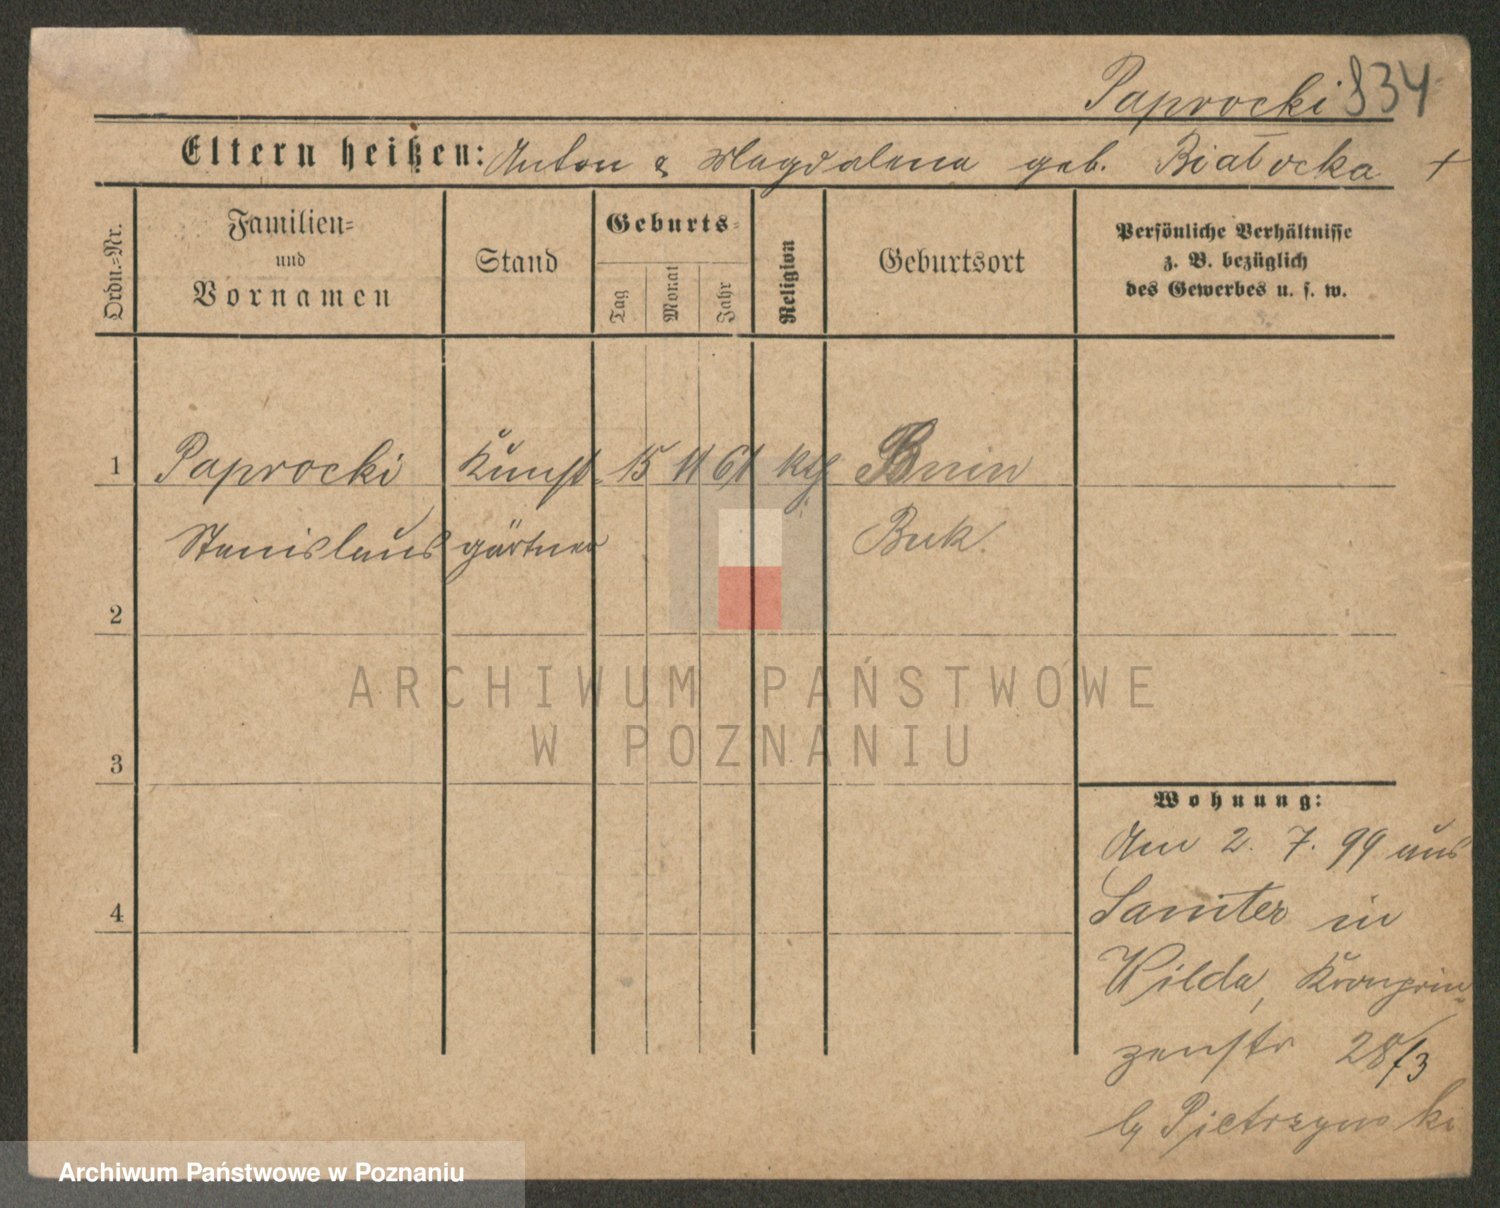 Paprocki 834
Eltern heißen: Anton & Magdalena geb. Białocka +
Ordn.-Nr.
Familien- und Vornamen
Stand
Geburts-
Tag
Monat
Jahr
Religion
Geburtsort
Persönliche Verhältnisse
z. B. bezüglich
des Gewerbes u. s. w.
1 Paprocki Kunst- 15 11 61 kth Bnin
Stanislaus gärtner Buk.
2
3
4
Wohnung:
Am 2. 7. 99 aus
Samter in
Wilda, Kronprin-
zenstr 28/3
by Pietrzynski
ARCHIWUM PAŃSTWOWE
W POZNANIU
Archiwum Państwowe w Poznaniu